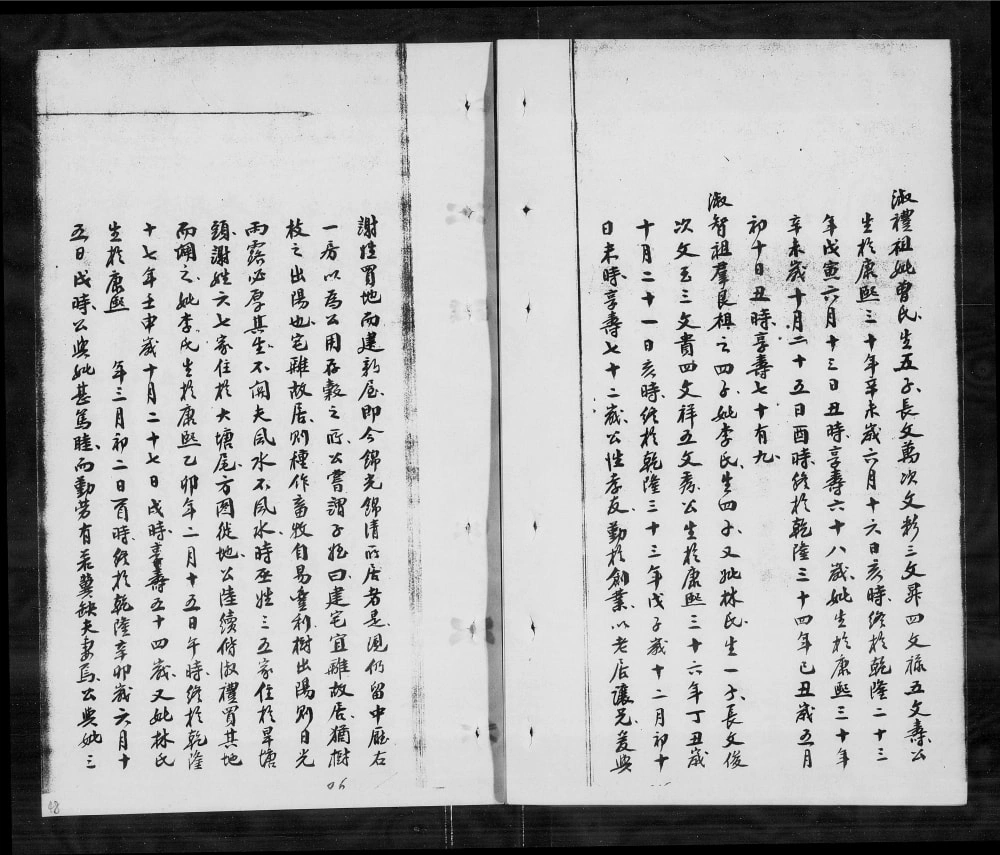 淑禮祖妣曾氏生五子長文萬次文彩三文昇四文祿五文壽公
生於康熙三十年辛未歲六月十六日亥時終於乾隆二十三
年戊寅六月十三日丑時享壽六十八歲妣生於康熙三十年
辛未歲十月二十五日酉時終於乾隆三十四年己丑歲五月
初十日丑時享壽七十有九
淑智祖羣良祖之四子妣李氏生四子又妣林氏生一子長文俊
次文玉三文貴四文祥五文秀公生於康熙三十六年丁丑歲
十月二十一日亥時終於乾隆三十三年戊子歲十二月初十
日未時享壽七十二歲公性孝友勤於創業以老居讓兄爰與
謝姓買地而建新屋即今錦光錦清所居者是溫仍留中廳右
一房以為公用存穀之所公嘗謂子姪曰建宅宜離故居猶樹
枝之出陽也宅離故居則種作畜牧自易豐利樹出陽則日光
雨露必厚其生不関夫風水不風水時巫姓三五家住於旱塘
頭謝姓六七家住於大塘尾方圍徙地公陸續偕淑禮買其地
而闢之妣李氏生於康熙乙卯年二月十五日午時終於乾隆
十七年壬申歲十月二十七日戌時享壽五十四歲又妣林氏
生於康熙 年三月初二日酉時終於乾隆辛卯歲六月十
五日戌時公與妣甚篤睦而勤劳有若冀缺夫妻焉公與妣三
06
48